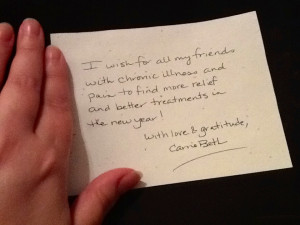 I wish for all my friends
with chronic illness and
pain to find more relief
and better treatments in
the new year!
with love & gratitude,
Carrie Beth